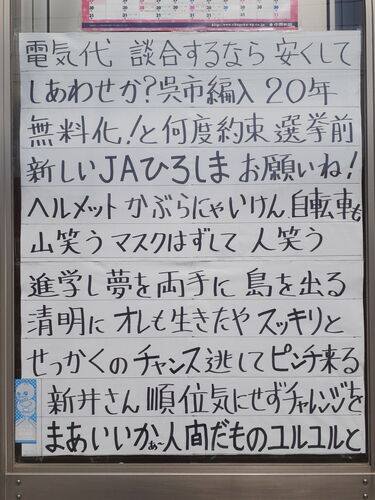 電気代 談合するなら 安くして
しあわせか?呉市編入 20年
無料化!と何度約束 選挙前
新しいJAひろしま お願いね!
ヘルメット かぶらにゃいけん 自転車も
山笑う マスクはずして 人笑う
進学し 夢を両手に 島を出る
清明に オレも生きたや スッキリと
せっかくの チャンス逃して ピンチ来る
新井さん 順位気にせず チャレンジを
まあいいかぁ~人間だもの ユルユルと